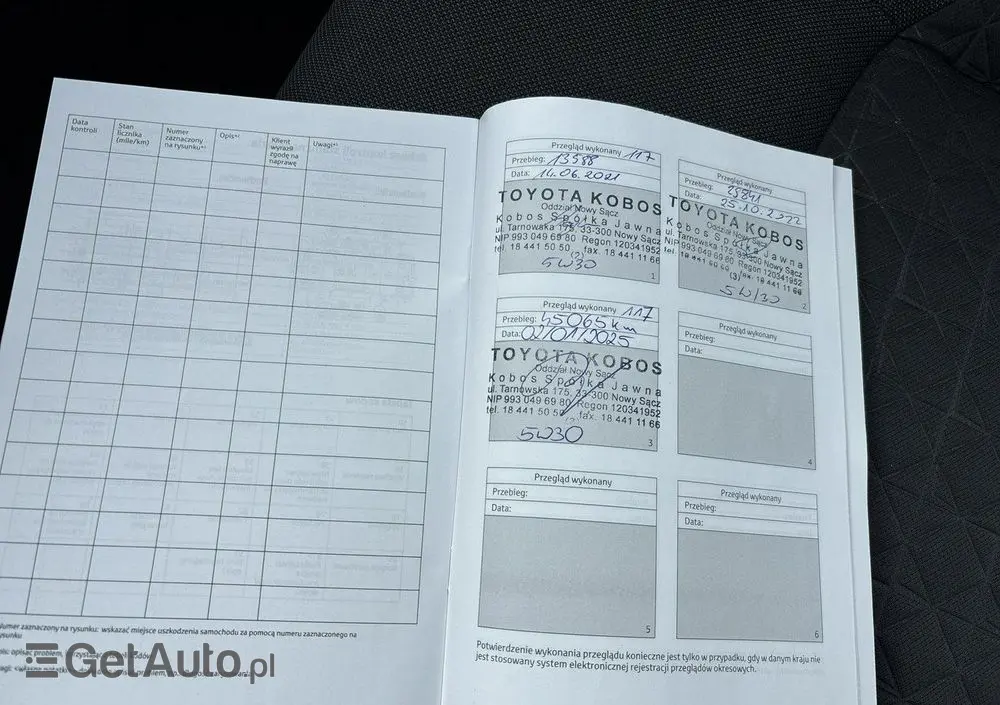 Data kontroli
Stan licznika (mile/km)
Numer zaznaczony na rysunku*¹
Opis*¹
Klient wyraził zgodę na naprawę
Uwagi*¹
Numer zaznaczony na rysunku: wskazać miejsce uszkodzenia samochodu za pomocą numeru zaznaczonego na
rysunku
Przegląd wykonany 117
Przebieg: 13588
Data: 14.06.2021
TOYOTA KOBOS
Oddział Nowy Sącz
Kobos Spółka Jawna
ul. Tarnowska 175, 33-300 Nowy Sącz
NIP 993 049 69 80 Regon 120341952
tel. 18 441 50 50, fax. 18 441 11 66
(2)
5W30
1
Przegląd wykonany
Przebieg: 29841
Data: 25.10.2022
TOYOTA KOBOS
Oddział Nowy Sącz
Kobos Spółka Jawna
ul. Tarnowska 175, 33-300 Nowy Sącz
NIP 993 049 69 80 Regon 120341952
tel. 18 441 50 50 fax. 18 441 11 66
(3)
5W/30
2
Przegląd wykonany 117
Przebieg: 45065km
Data: 02/01/2025
TOYOTA KOBOS
Oddział Nowy Sącz
Kobos Spółka Jawna
ul. Tarnowska 175, 33-300 Nowy Sącz
NIP 993 049 69 80 Regon 120341952
tel. 18 441 50 50, fax. 18 441 11 66
5W30
3
Przegląd wykonany
Przebieg:
Data:
4
Przegląd wykonany
Przebieg:
Data:
5
Przegląd wykonany
Przebieg:
Data:
6
Potwierdzenie wykonania przeglądu konieczne jest tylko w przypadku, gdy w danym kraju nie
jest stosowany system elektronicznej rejestracji przeglądów okresowych.
GetAuto.pl